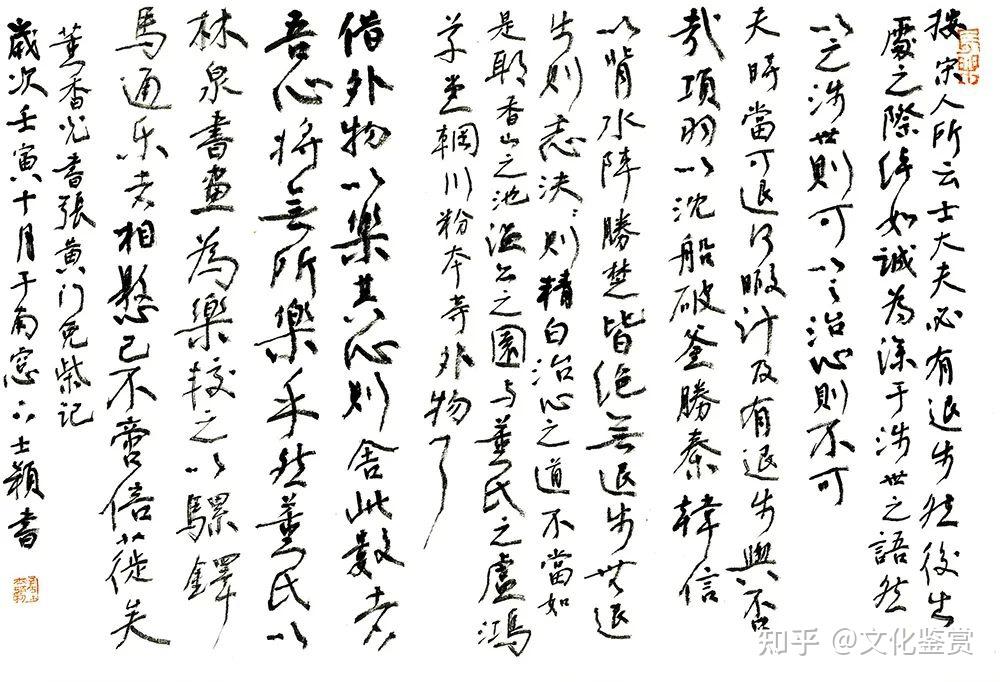 按宋人所云士大夫必有退步然後出
處之際綽如誠為深于涉世之語然
以之涉世則可以之治心則不可
夫時當可退何暇計及有退步與否
哉項羽以沈船破釜勝秦韓信
以背水陣勝楚皆絕無退步無退
步則志決〻則精白治心之道不當如
是耶香山之池溫公之園與董氏之盧鴻
草堂輞川粉本等外物
借外物以樂其心則舍此數者
吾心將無所樂乎然董氏以
林泉書畫為樂較之以騾鐸
馬通乐者相懸已不啻倍蓰矣
董香光書張黃門免柴記
歲次壬寅十月于南窓下士穎書
知乎 @文化鉴赏